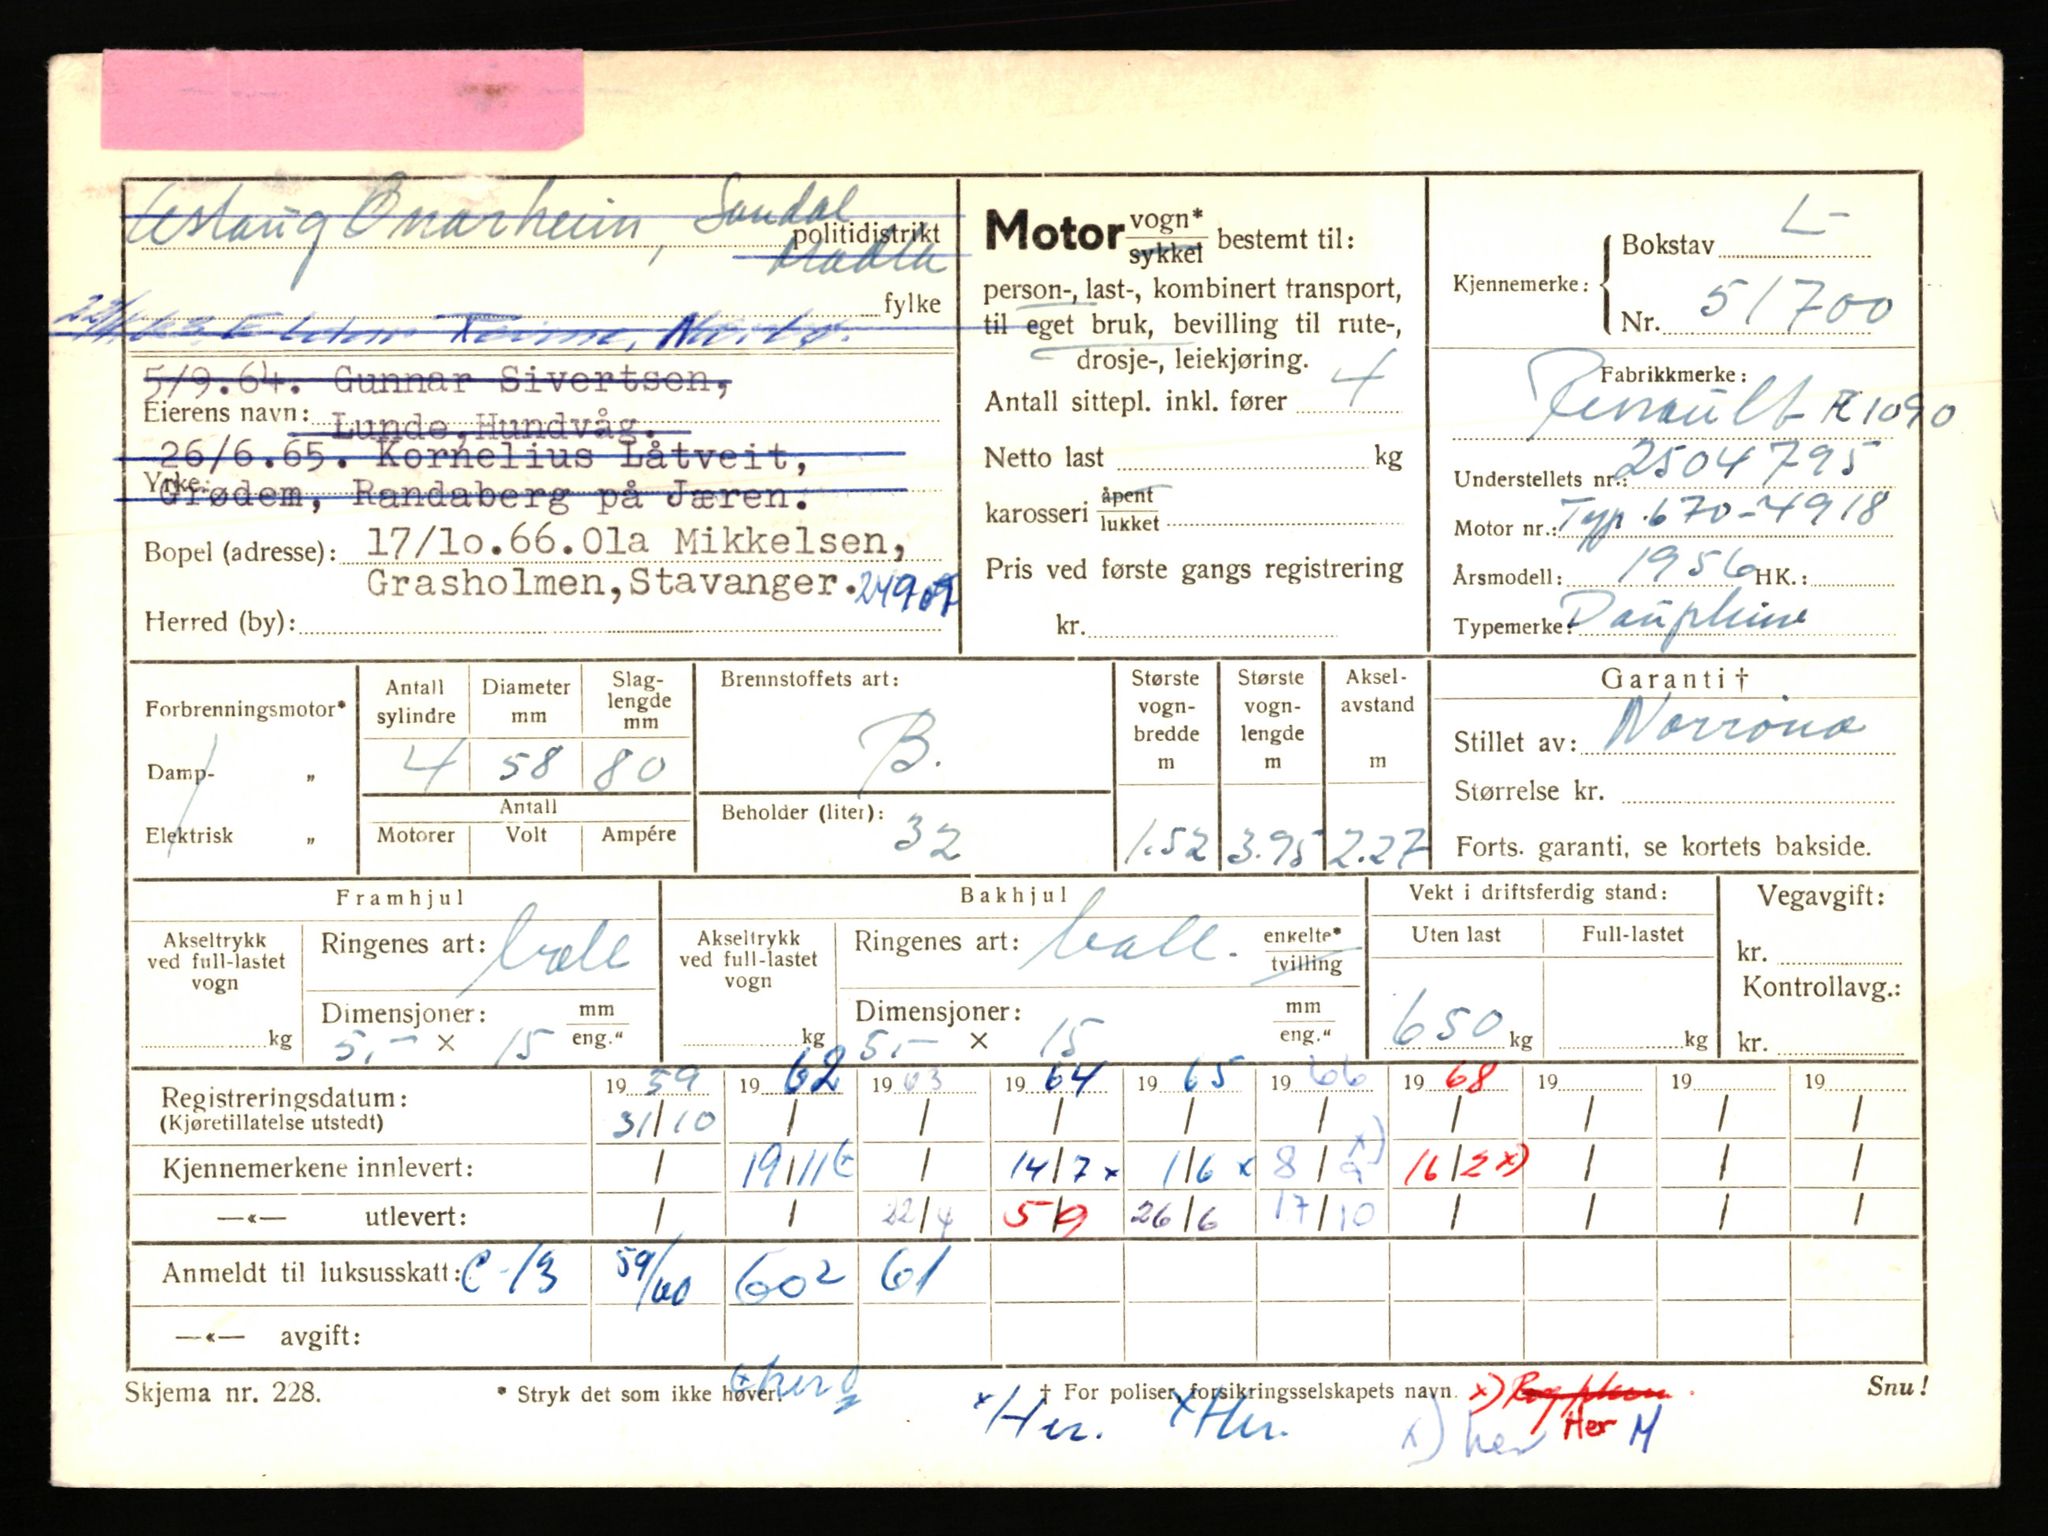 Aslaug Onarheim, Sandal
politidistrikt
Madla
fylke
5/9.64. Gunnar Sivertsen,
Eierens navn:
Lunde, Hundvåg.
26/6.65. Kornelius Låtveit,
Yrke:
Grødem, Randaberg på Jæren.
Bopel (adresse): 17/10.66. Ola Mikkelsen,
Grasholmen, Stavanger.
Herred (by):
Motor vogn* / sykkel bestemt til:
person-, last-, kombinert transport,
til eget bruk, bevilling til rute-,
drosje-, leiekjøring.
Antall sittepl. inkl. fører 4
Netto last kg
karosseri åpent / lukket
Pris ved første gangs registrering
kr.
Kjennemerke: Bokstav L-
Nr. 51700
Fabrikkmerke:
Renault R 1090
Understellets nr.: 2504795
Motor nr.: Typ. 670-4918
Årsmodell: 1956 HK.:
Typemerke: Dauphine
Forbrenningsmotor*
Damp- „
Elektrisk „
Antall sylindre 4
Diameter mm 58
Slag-lengde mm 80
Antall
Motorer Volt Ampére
Brennstoffets art:
B.
Beholder (liter):
32
Største vogn-bredde m 1.52
Største vogn-lengde m 3.95
Aksel-avstand m 2.27
Garanti †
Stillet av: Norrøna
Størrelse kr.
Forts. garanti, se kortets bakside.
Framhjul
Akseltrykk ved full-lastet vogn
kg
Ringenes art: ball
Dimensjoner: mm / eng."
5,- × 15
Bakhjul
Akseltrykk ved full-lastet vogn
kg
Ringenes art: ball. enkelte* / tvilling
Dimensjoner: mm / eng."
5,- × 15
Vekt i driftsferdig stand:
Uten last Full-lastet
650 kg kg
Vegavgift:
kr.
Kontrollavg.:
kr.
19 59 19 62 19 63 19 64 19 65 19 66 19 68 19 19 19
Registreringsdatum:
(Kjøretillatelse utstedt) 31/10 / / / / / / / / /
Kjennemerkene innlevert: / 19/11 / 14/7 x 1/6 x 8/9 x) 16/2 x) / / /
—«— utlevert: / / 22/4 5/9 26/6 17/10 / / / /
Anmeldt til luksusskatt: C-13 59/60 602 61
—«— avgift:
Skjema nr. 228.
* Stryk det som ikke høver.
† For poliser, forsikringsselskapets navn.
Snu!
x Her. x Her. x) her
Her M